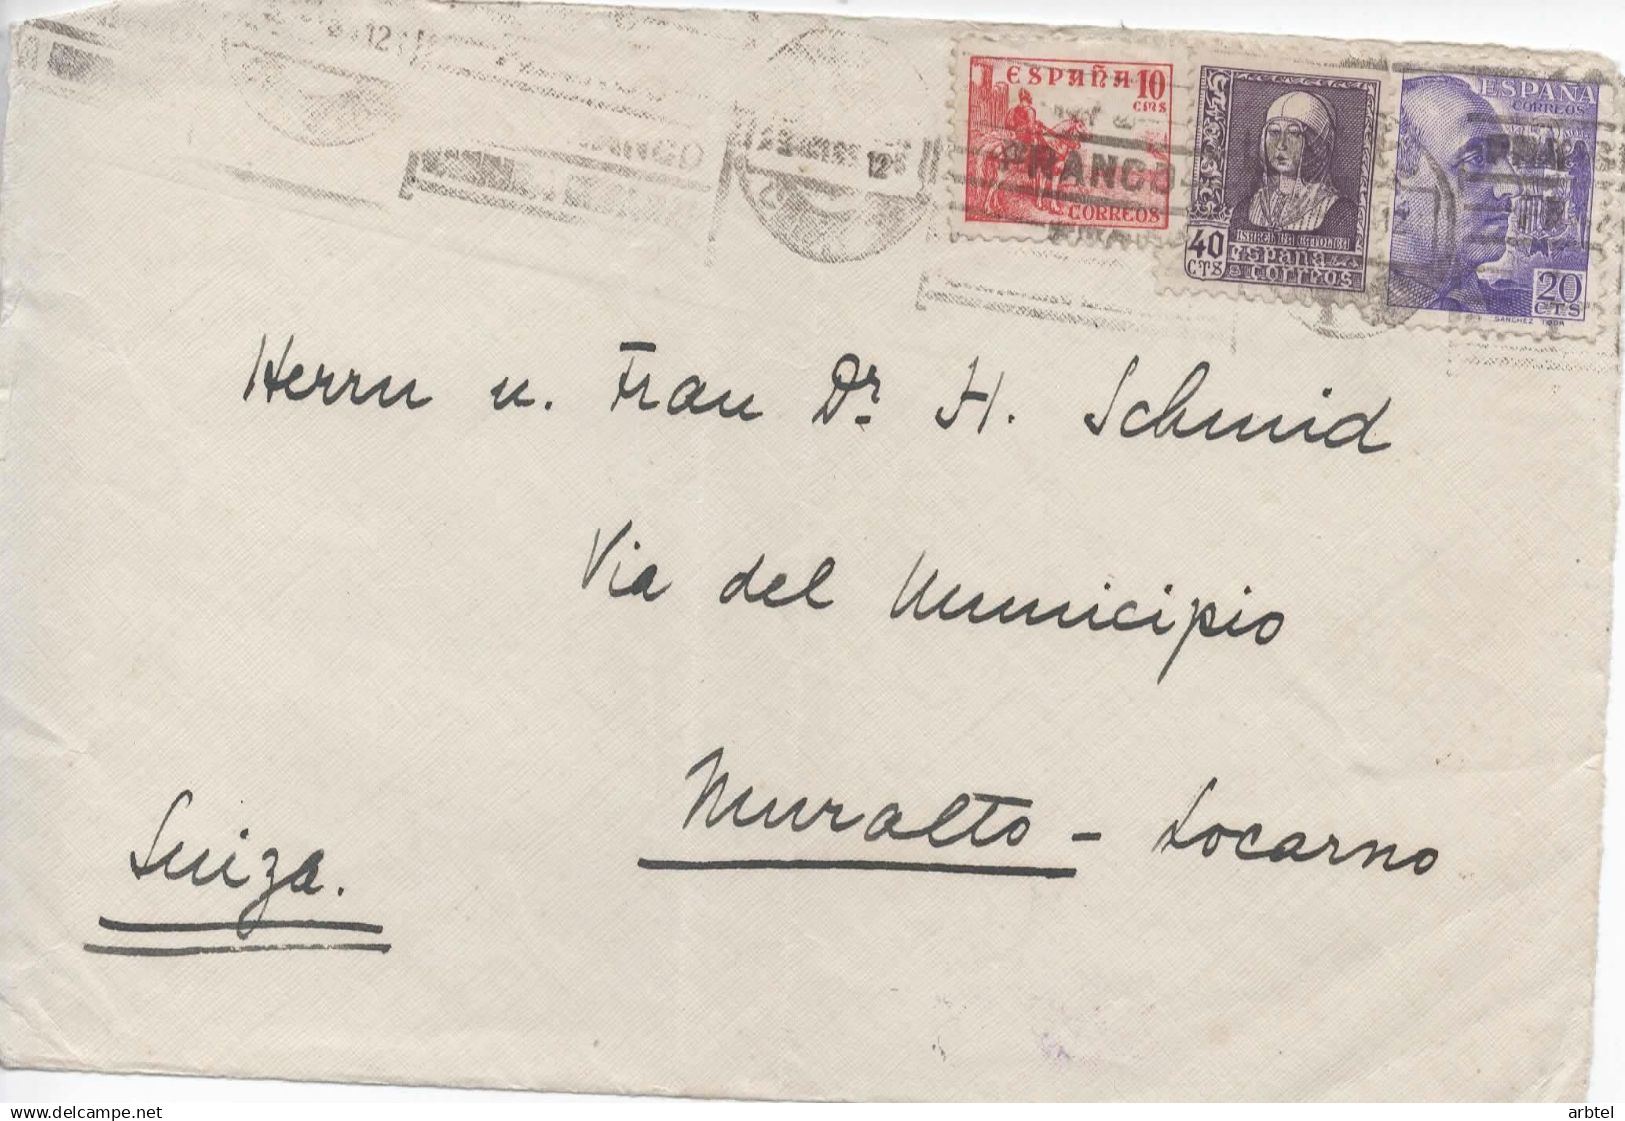 12
12
FRANCO
ESPAÑA 10
CMS
CORREOS
ISABEL LA CATOLICA
40 ESPAÑA
CTS CORREOS
ESPAÑA
CORREOS
20
CTS
SANCHEZ TODA
Herrn u. Frau Dr. H. Schmid
Via del Municipio
Muralto - Locarno
Suiza.
arbtel